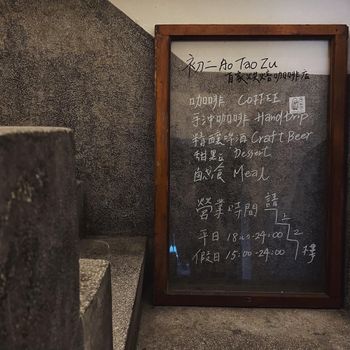 初二 Ao Tao Zu
自家烘焙咖啡店
咖啡 COFFEE
手沖咖啡 Handdrip
精釀啤酒 Craft Beer
甜點 Dessert
鹹食 Meal
營業時間
平日 18:00-24:00
假日 15:00-24:00
請上2樓